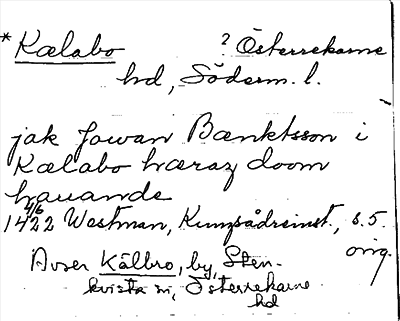 *Kælabo ? Österrekarne
hd, Söderm. l.
jak Jowan Bænktsson i
Kælabo hæraz doom
hauande
4/6
1422 Westman, Kungsådreinst., s. 5.
orig.
Avser Kälbro, by, Sten-
kvista sn, Österrekarne
hd